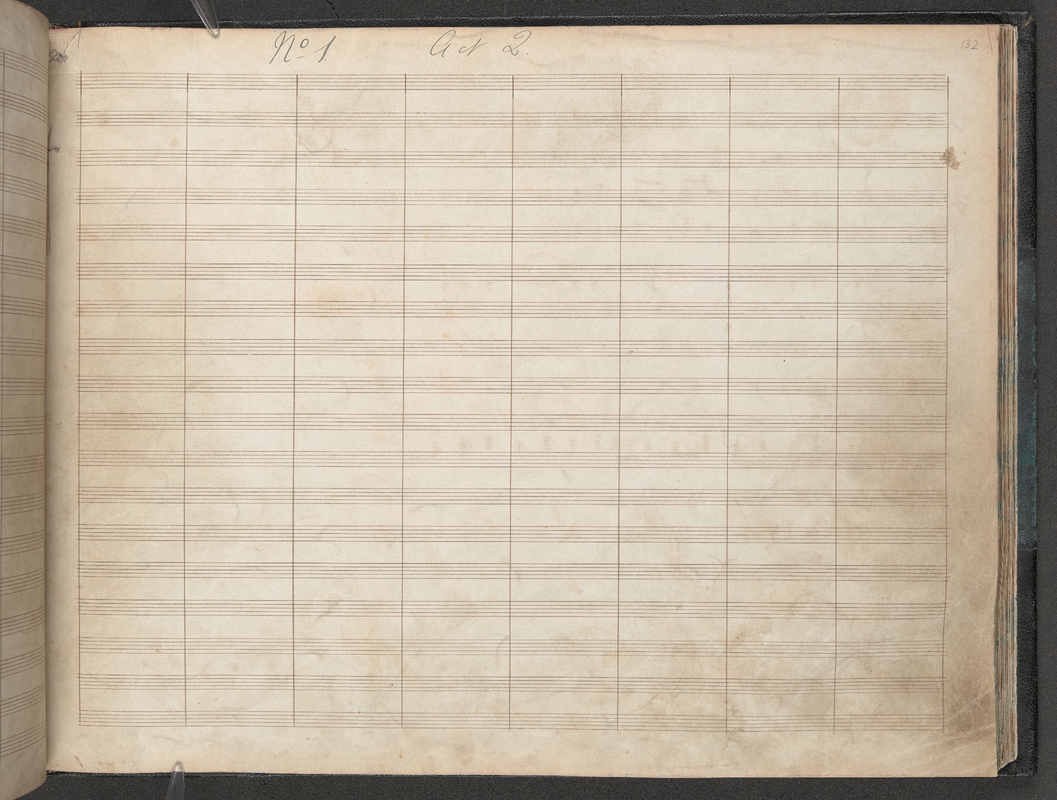 No 1. Act 2.
132